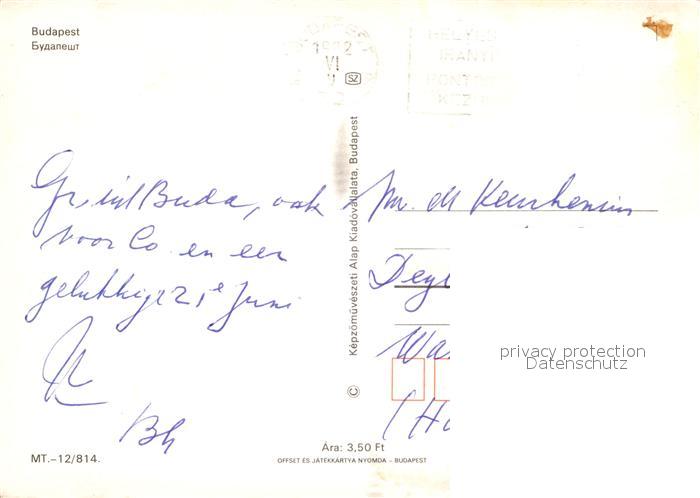 Budapest
Будапешт
1982
VI
SZ
HELYES
IRÁNYÍ
KÉZ
Gr. uit Buda, ook
voor Co en een
gelukkige 21e Juni
Bh
Képzőművészeti Alap Kiadóvállalata, Budapest
©
Fam.
Wa
(Hu
privacy protection
Datenschutz
Ára: 3,50 Ft
MT.–12/814.
OFFSET ÉS JÁTÉKKÁRTYA NYOMDA – BUDAPEST